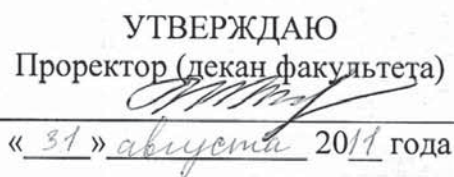 УТВЕРЖДАЮ
Проректор (декан факультета)
«31» августа 2011 года